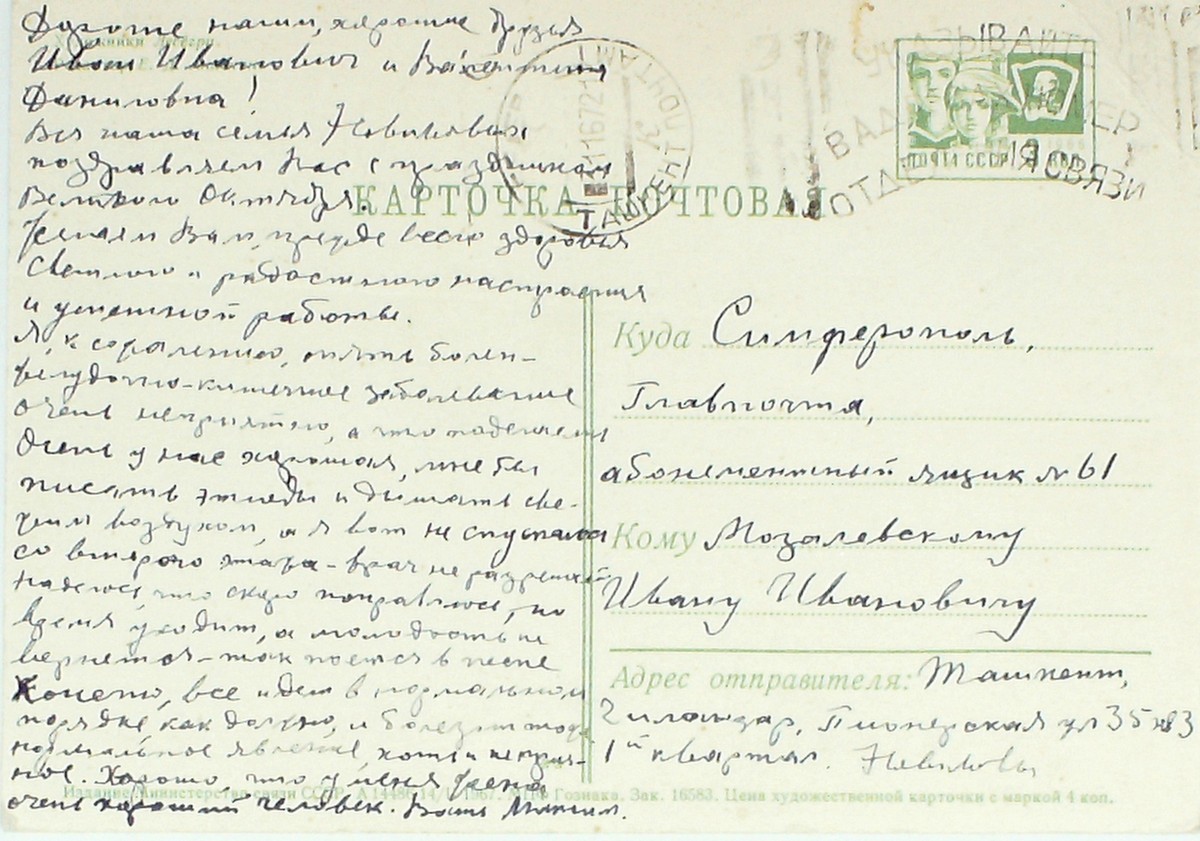 Дорогие наши, хорошие друзья
Иван Иванович и Валентина
Даниловна!
Вся наша семья Новиковых
поздравляем Вас с праздником
Великого Октября.
Желаем Вам, прежде всего здоровья
светлого и радостного настроения
и успешной работы.
Я, к сожалению, опять болен-
желудочно-кишечное заболевание
очень неприятно, а что поделаешь
Осень у нас хорошая, мне бы
писать этюды и дышать све-
жим воздухом, а я вот не спускаюсь
со второго этажа - врач не разрешает
Надеюсь, что скоро поправлюсь, но
время уходит, а молодость не
вернется - так поется в песне
Конечно, все идет в нормальном
порядке, как должно, и болезни тоже
нормальное явление, хотя и неприят-
ное. Хорошо, что у меня жена
очень хороший человек. Ваш Максим.
КАРТОЧКА ПОЧТОВАЯ
ТАШКЕНТ ПОЧТАМТ
ПОЧТА СССР
СВЯЗИ
Куда Симферополь,
Главпочта,
абонементный ящик № 61
Кому Мозалевскому
Ивану Ивановичу
Адрес отправителя: Ташкент,
Чиланзар, Пионерская ул 35 кв 3
1й квартал. Новиковы
Издание Министерства связи СССР. А 14486 1967. МПФ Гознака. Зак. 16583. Цена художественной карточки с маркой 4 коп.